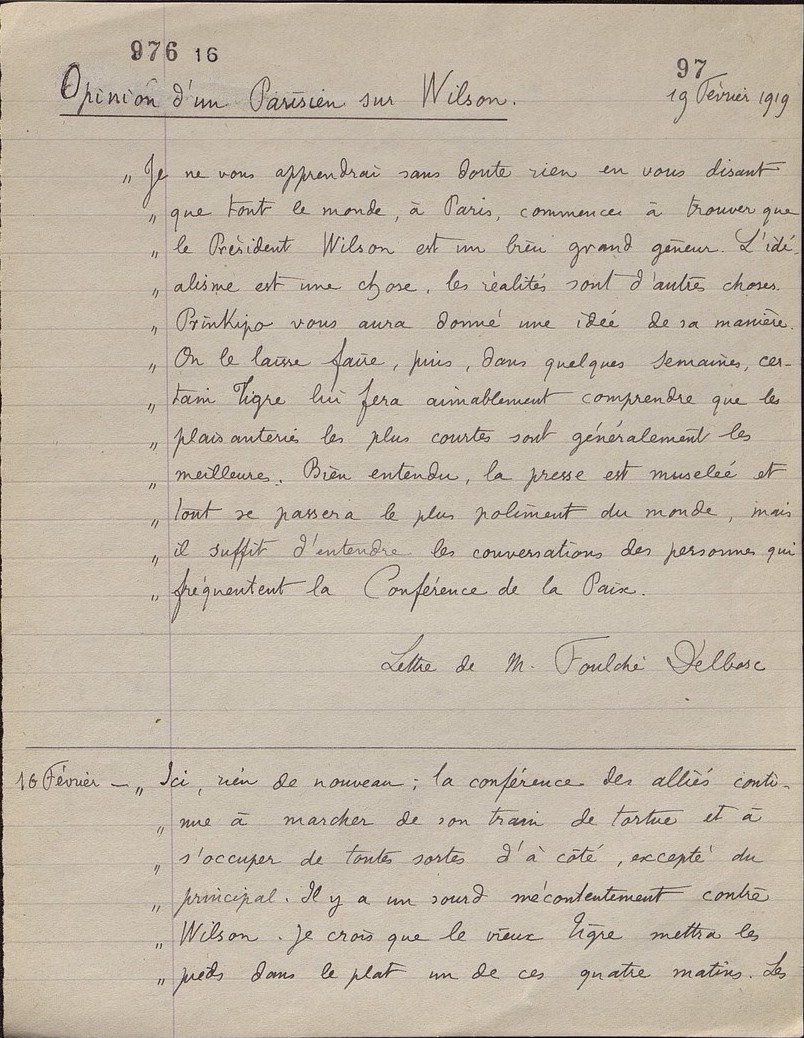 976 16
97
Opinion d'un Parisien sur Wilson.
19 Février 1919
„ Je ne vous apprendrai sans doute rien en vous disant
„ que tout le monde, à Paris, commence à trouver que
„ le Président Wilson est un bien grand gêneur. L'idé-
„ alisme est une chose, les réalités sont d'autres choses.
„ Prinkipo vous aura donné une idée de sa manière.
„ On le laisse faire, puis, dans quelques semaines, cer-
„ tain Tigre lui fera aimablement comprendre que les
„ plaisanteries les plus courtes sont généralement les
„ meilleures. Bien entendu, la presse est muselée et
„ tout se passera le plus poliment du monde, mais
„ il suffit d'entendre les conversations des personnes qui
„ fréquentent la Conférence de la Paix.
Lettre de M. Foulché Delbosc
16 Février — „ Ici, rien de nouveau ; la conférence des alliés conti-
„ nue à marcher de son train de tortue et à
„ s'occuper de toutes sortes d'à côté, excepté du
„ principal. Il y a un sourd mécontentement contre
„ Wilson. Je crois que le vieux Tigre mettra les
„ pieds dans le plat un de ces quatre matins. Les